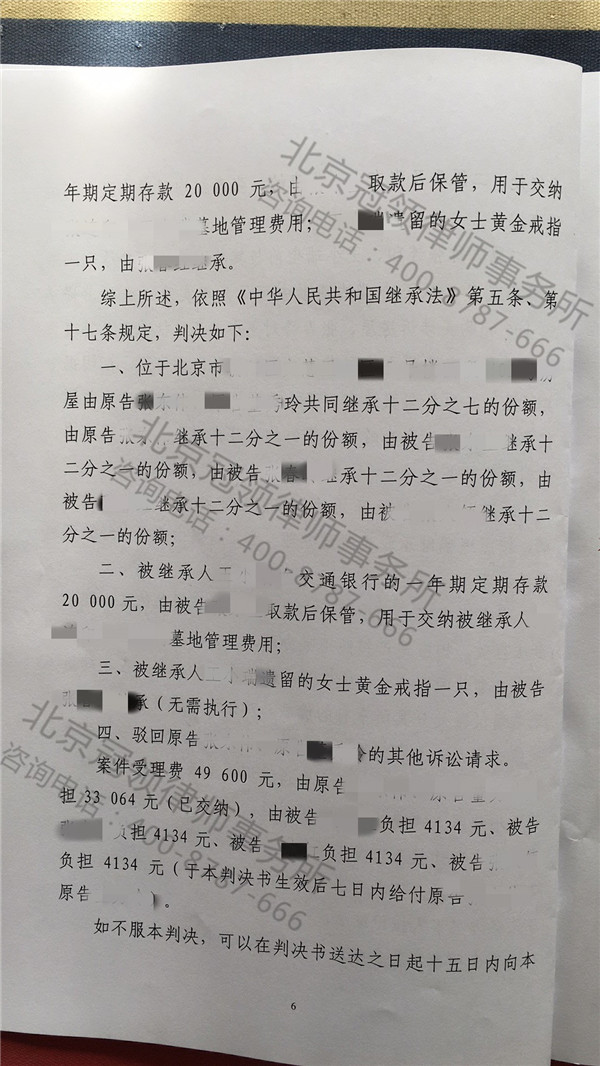 年期定期存款 20 000 元，由 取款后保管，用于交纳
墓地管理费用； 遗留的女士黄金戒指
一只，由 继承。
综上所述，依照《中华人民共和国继承法》第五条、第
十七条规定，判决如下：
一、位于北京市
屋由原告 玲共同继承十二分之七的份额，
由原告 继承十二分之一的份额，由被告 继承十
二分之一的份额，由被告 继承十二分之一的份额，由
被告 继承十二分之一的份额，由被 继承十二
分之一的份额；
二、被继承人 交通银行的一年期定期存款
20 000 元，由被告 取款后保管，用于交纳被继承人
墓地管理费用；
三、被继承人 遗留的女士黄金戒指一只，由被告
承（无需执行）；
四、驳回原告 的其他诉讼请求。
案件受理费 49 600 元，由原告
担 33 064 元（已交纳），由被告 负担 4134 元、被告
负担 4134 元、被告 负担 4134 元、被告
负担 4134 元（于本判决书生效后七日内给付原告
原告 ）。
如不服本判决，可以在判决书送达之日起十五日内向本
6
北京冠领律师事务所
咨询电话：400-8787-666
北京冠领律师事务所
咨询电话：400-8787-666
北京冠领律师事务所
咨询电话：400-8787-666